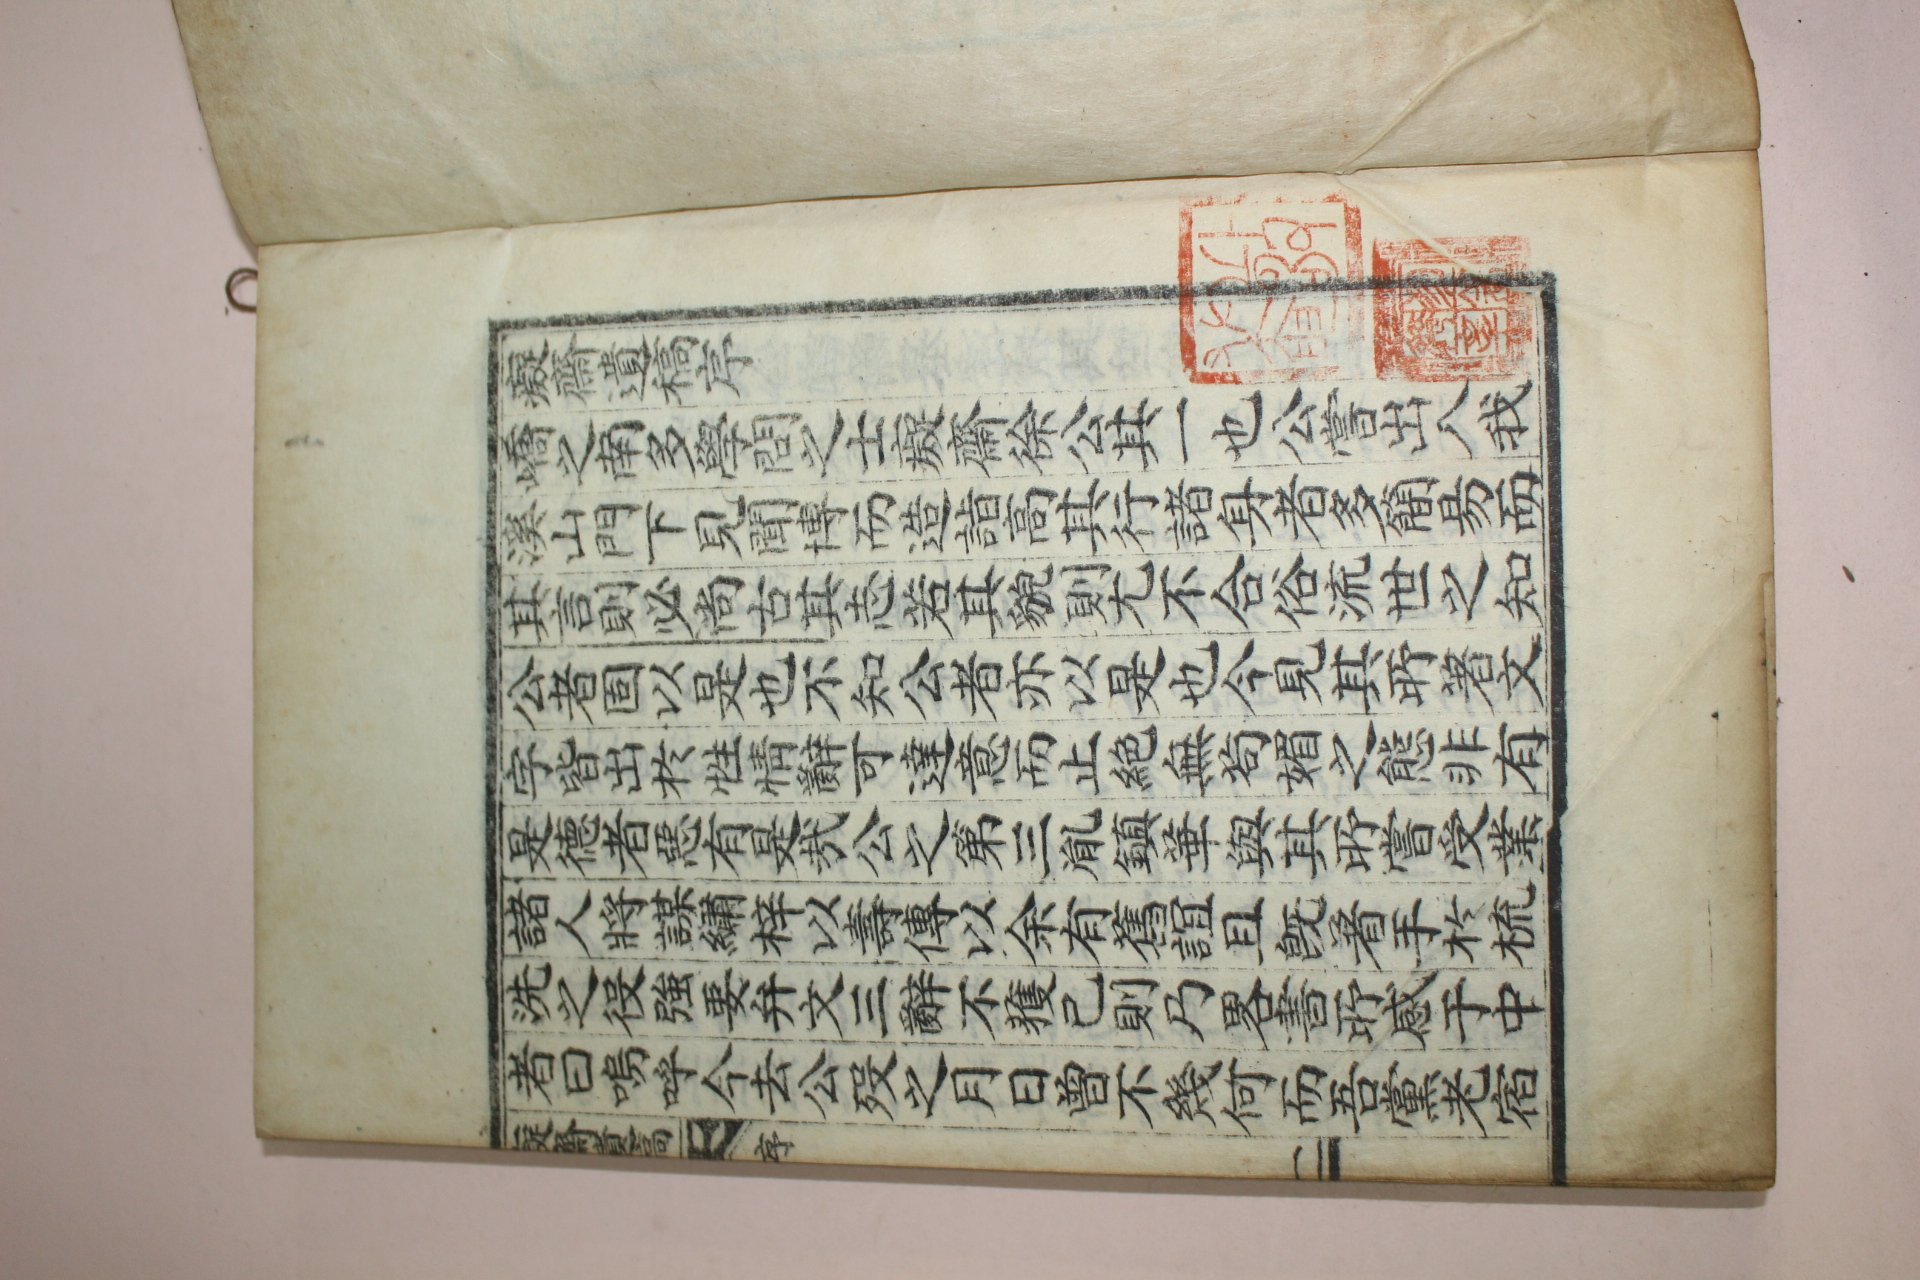 癡齋遺稿序
嶠之南多學問之士癡齋徐公其一也公嘗出入我
溪山門下見聞博而造詣高其行諸身者多簡易而
其言則必尚古其志若其貌則尤不合俗流世之知
公者固以是也不知公者亦以是也今見其所著文
字皆出於性情辭可達意而止絕無苟媚之態非有
是德者惡有是哉公之第三胤鎭華與其所嘗受業
諸人將謀繡梓以壽傳以余有舊誼且旣著手於梳
洗之役強要弁文三辭不獲已則乃畧書所感于中
者曰嗚呼今去公歿之月日曾不幾何而吾黨老宿
癡齋遺稿 序 一